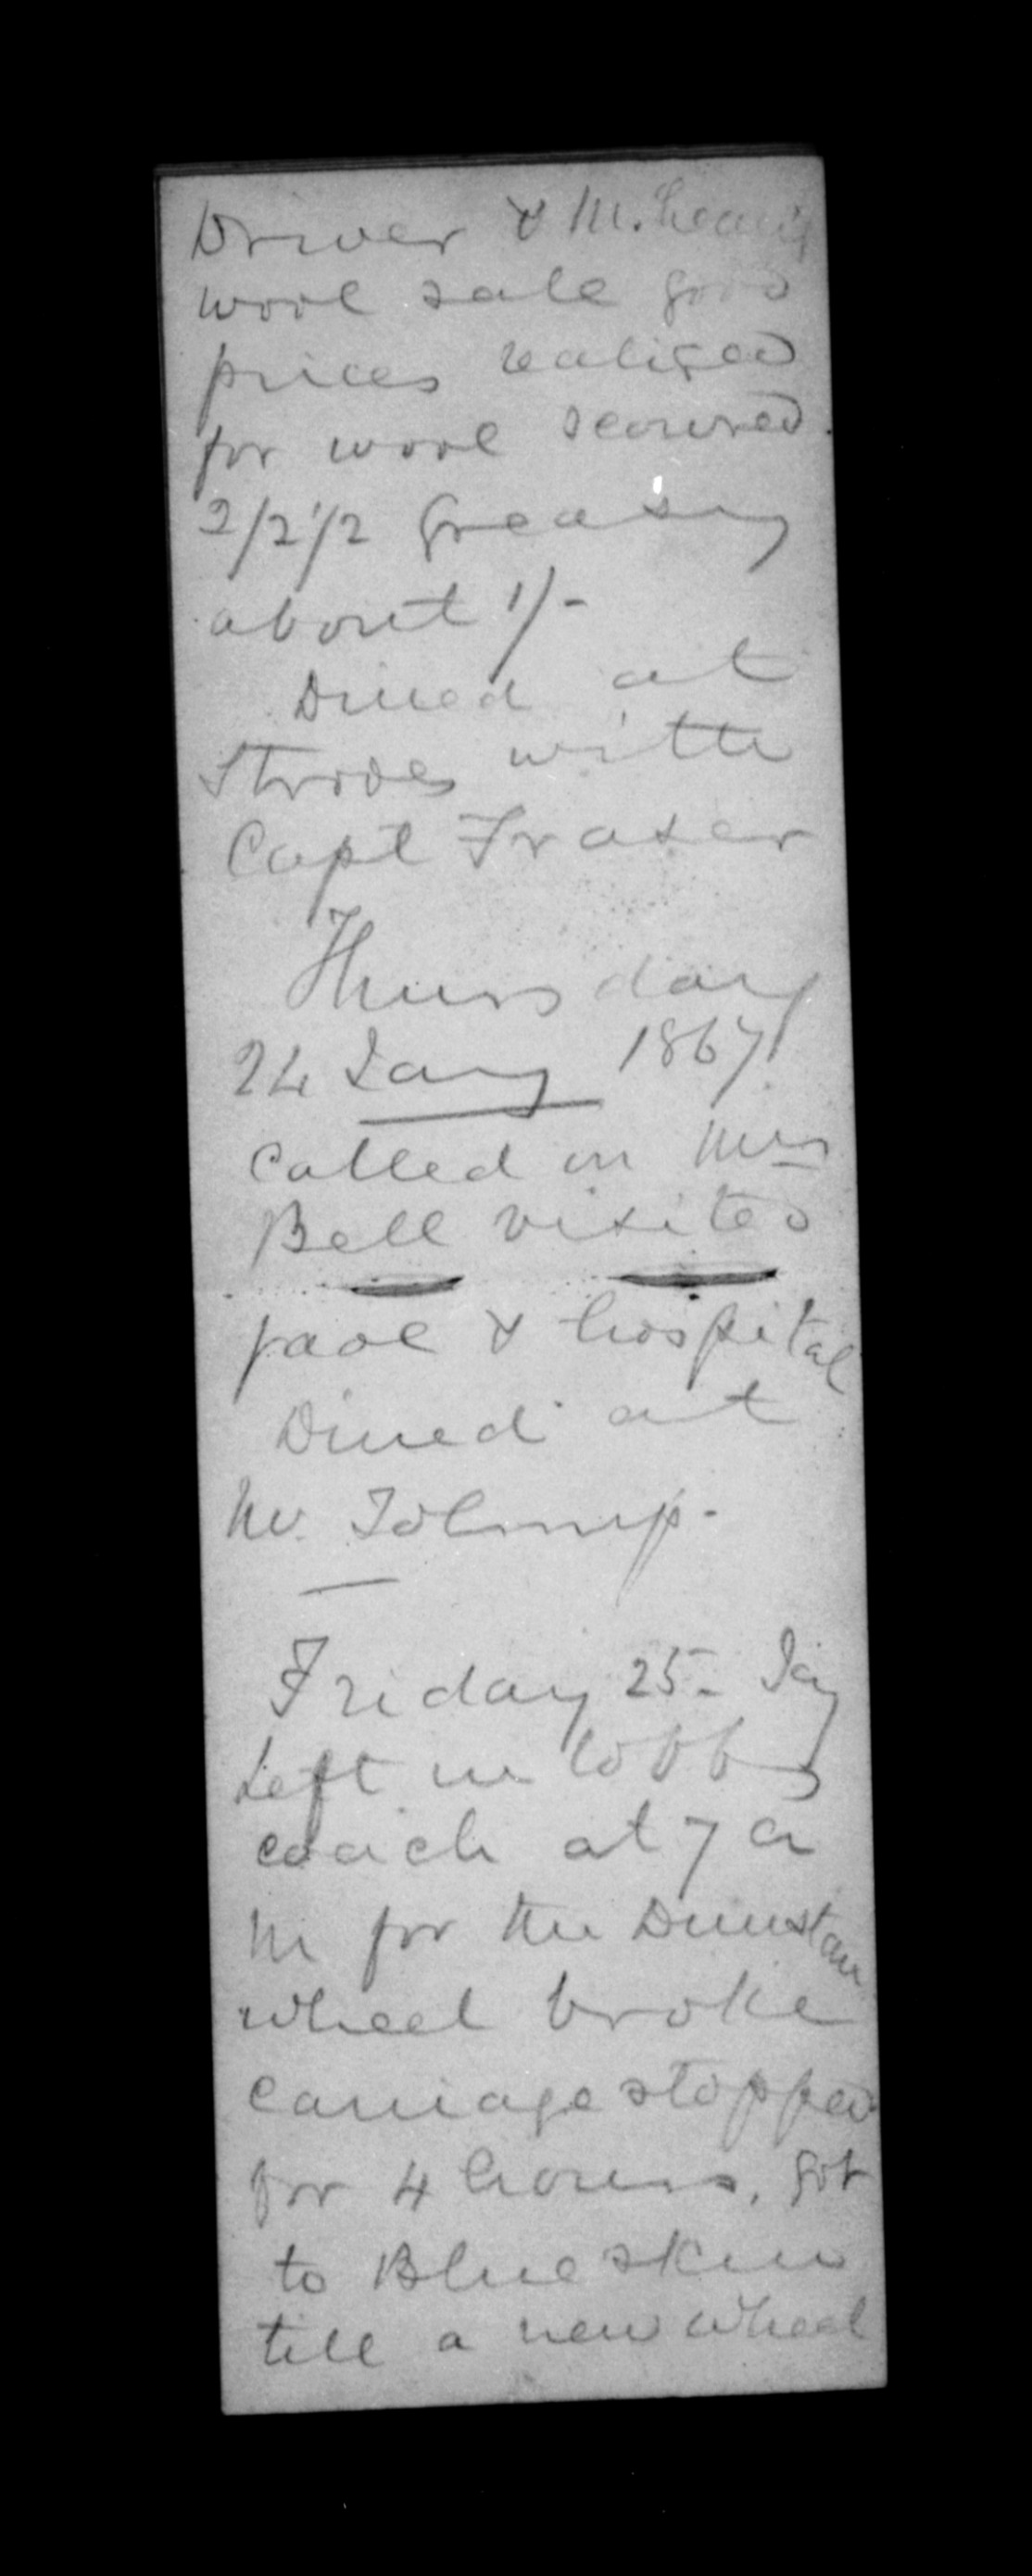 Driver & McLean's
wool sale good
prices realised
for wool scoured.
2/2 1/2 Greasy
about 1/-
Dined at
Strodes with
Capt Fraser
Thursday
24 Jany 1867
Called on Mrs
Bell visited
gaol & hospital
Dined at
Mr.
Friday 25 - Jay
Left in Cobbs
coach at 7 a
m for the Dunstan
wheel broke
carriage stopped
for 4 hours, got
to Blueskin
till a new wheel